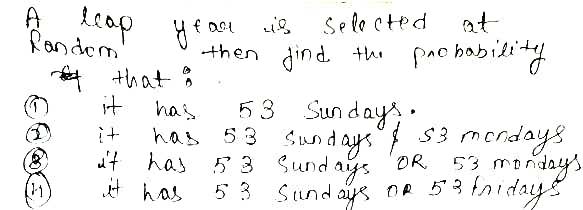 A leap year is selected at
Random then find the probability
that :
① it has 53 Sundays.
② it has 53 Sundays & 53 mondays
③ it has 53 Sundays OR 53 mondays
④ it has 53 Sundays OR 53 fridays